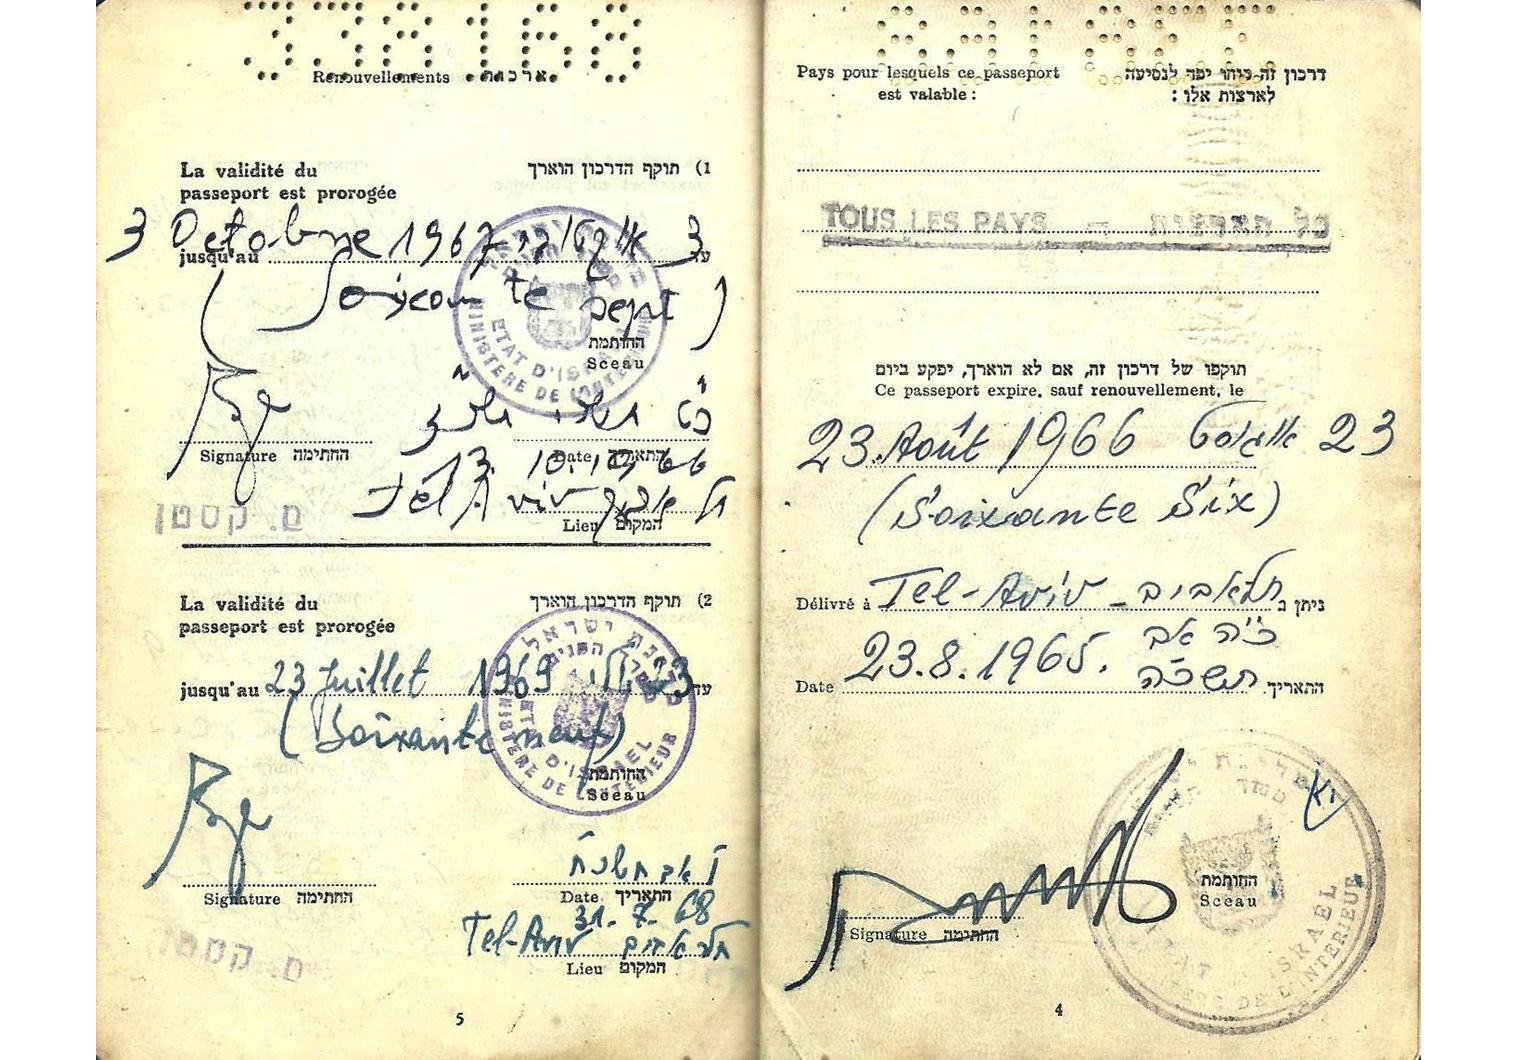 338168
Renouvellements ארכות
La validité du
passeport est prorogée
1) תוקף הדרכון הוארך
3 Octobre 1967 3
jusqu'au עד
(Soixante Sept)
MINISTÈRE DE L'INTÉRIEUR
החותמת
Sceau
Signature החתימה
Date התאריך
13.10.66
Tel Aviv תל אביב
Lieu המקום
ם. קסטן
La validité du
passeport est prorogée
2) תוקף הדרכון הוארך
jusqu'au 23 Juillet 1969 23 יולי עד
(Soixante neuf)
מדינת ישראל
משרד הפנים
ETAT D'ISRAEL
MINISTÈRE DE L'INTÉRIEUR
החותמת
Sceau
Signature החתימה
ו אב תשכח
Date התאריך
31.7.68
Tel-Aviv תל אביב
Lieu המקום
ם. קסטן
5
Pays pour lesquels ce passeport
est valable :
דרכון זה כוחו יפה לנסיעה
לארצות אלו :
TOUS LES PAYS — כל הארצות
תוקפו של דרכון זה, אם לא הוארך, יפקע ביום
Ce passeport expire, sauf renouvellement, le
23 Août 1966 23 אוגוסט
(Soixante Six)
Délivré à Tel-Aviv - תל אביב ניתן ב
כ"ה אב
Date 23.8.1965. תשכ"ה התאריך
החותמת
Sceau
Signature החתימה
ISRAEL
DE L'INTÉRIEUR
4